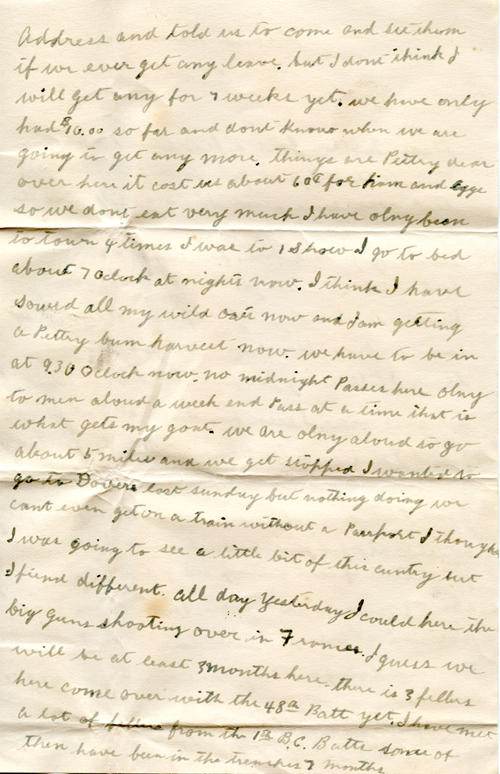 Address and told us to come and see them
if we ever get any leave. but I dont think I
will get any for 7 weeks yet. we have only
had $10.00 so far and dont know when we are
going to get any more. things are Pettry dear
over here it cost us about 60¢ for ham and eggs
so we dont eat very much I have olny been
to town 4 times I was to 1 show I go to bed
about 7 oclock at nights now. I think I have
sowed all my wild oats now and I am getting
a Pettry bum harvest now. we have to be in
at 930 Oclock now. no midnight Passes here olny
to men aloud a week end Pass at a time that is
what gets my goat. we are olny aloud to go
about 5 miles and we get stopped I wanted to
go to Dovere last sunday but nothing doing we
cant even get on a train without a Pasport I thought
I was going to see a little bit of this cuntry but
I fiend different. all day Yesterday I could here the
big guns shooting over in Frances. I guess we
will be at least 3 months here. there is 3 fellers
here come over with the 48th Batt yet. I have met
a lot of from the 1st B.C. Batts some of
then have been in the trenches 7 months